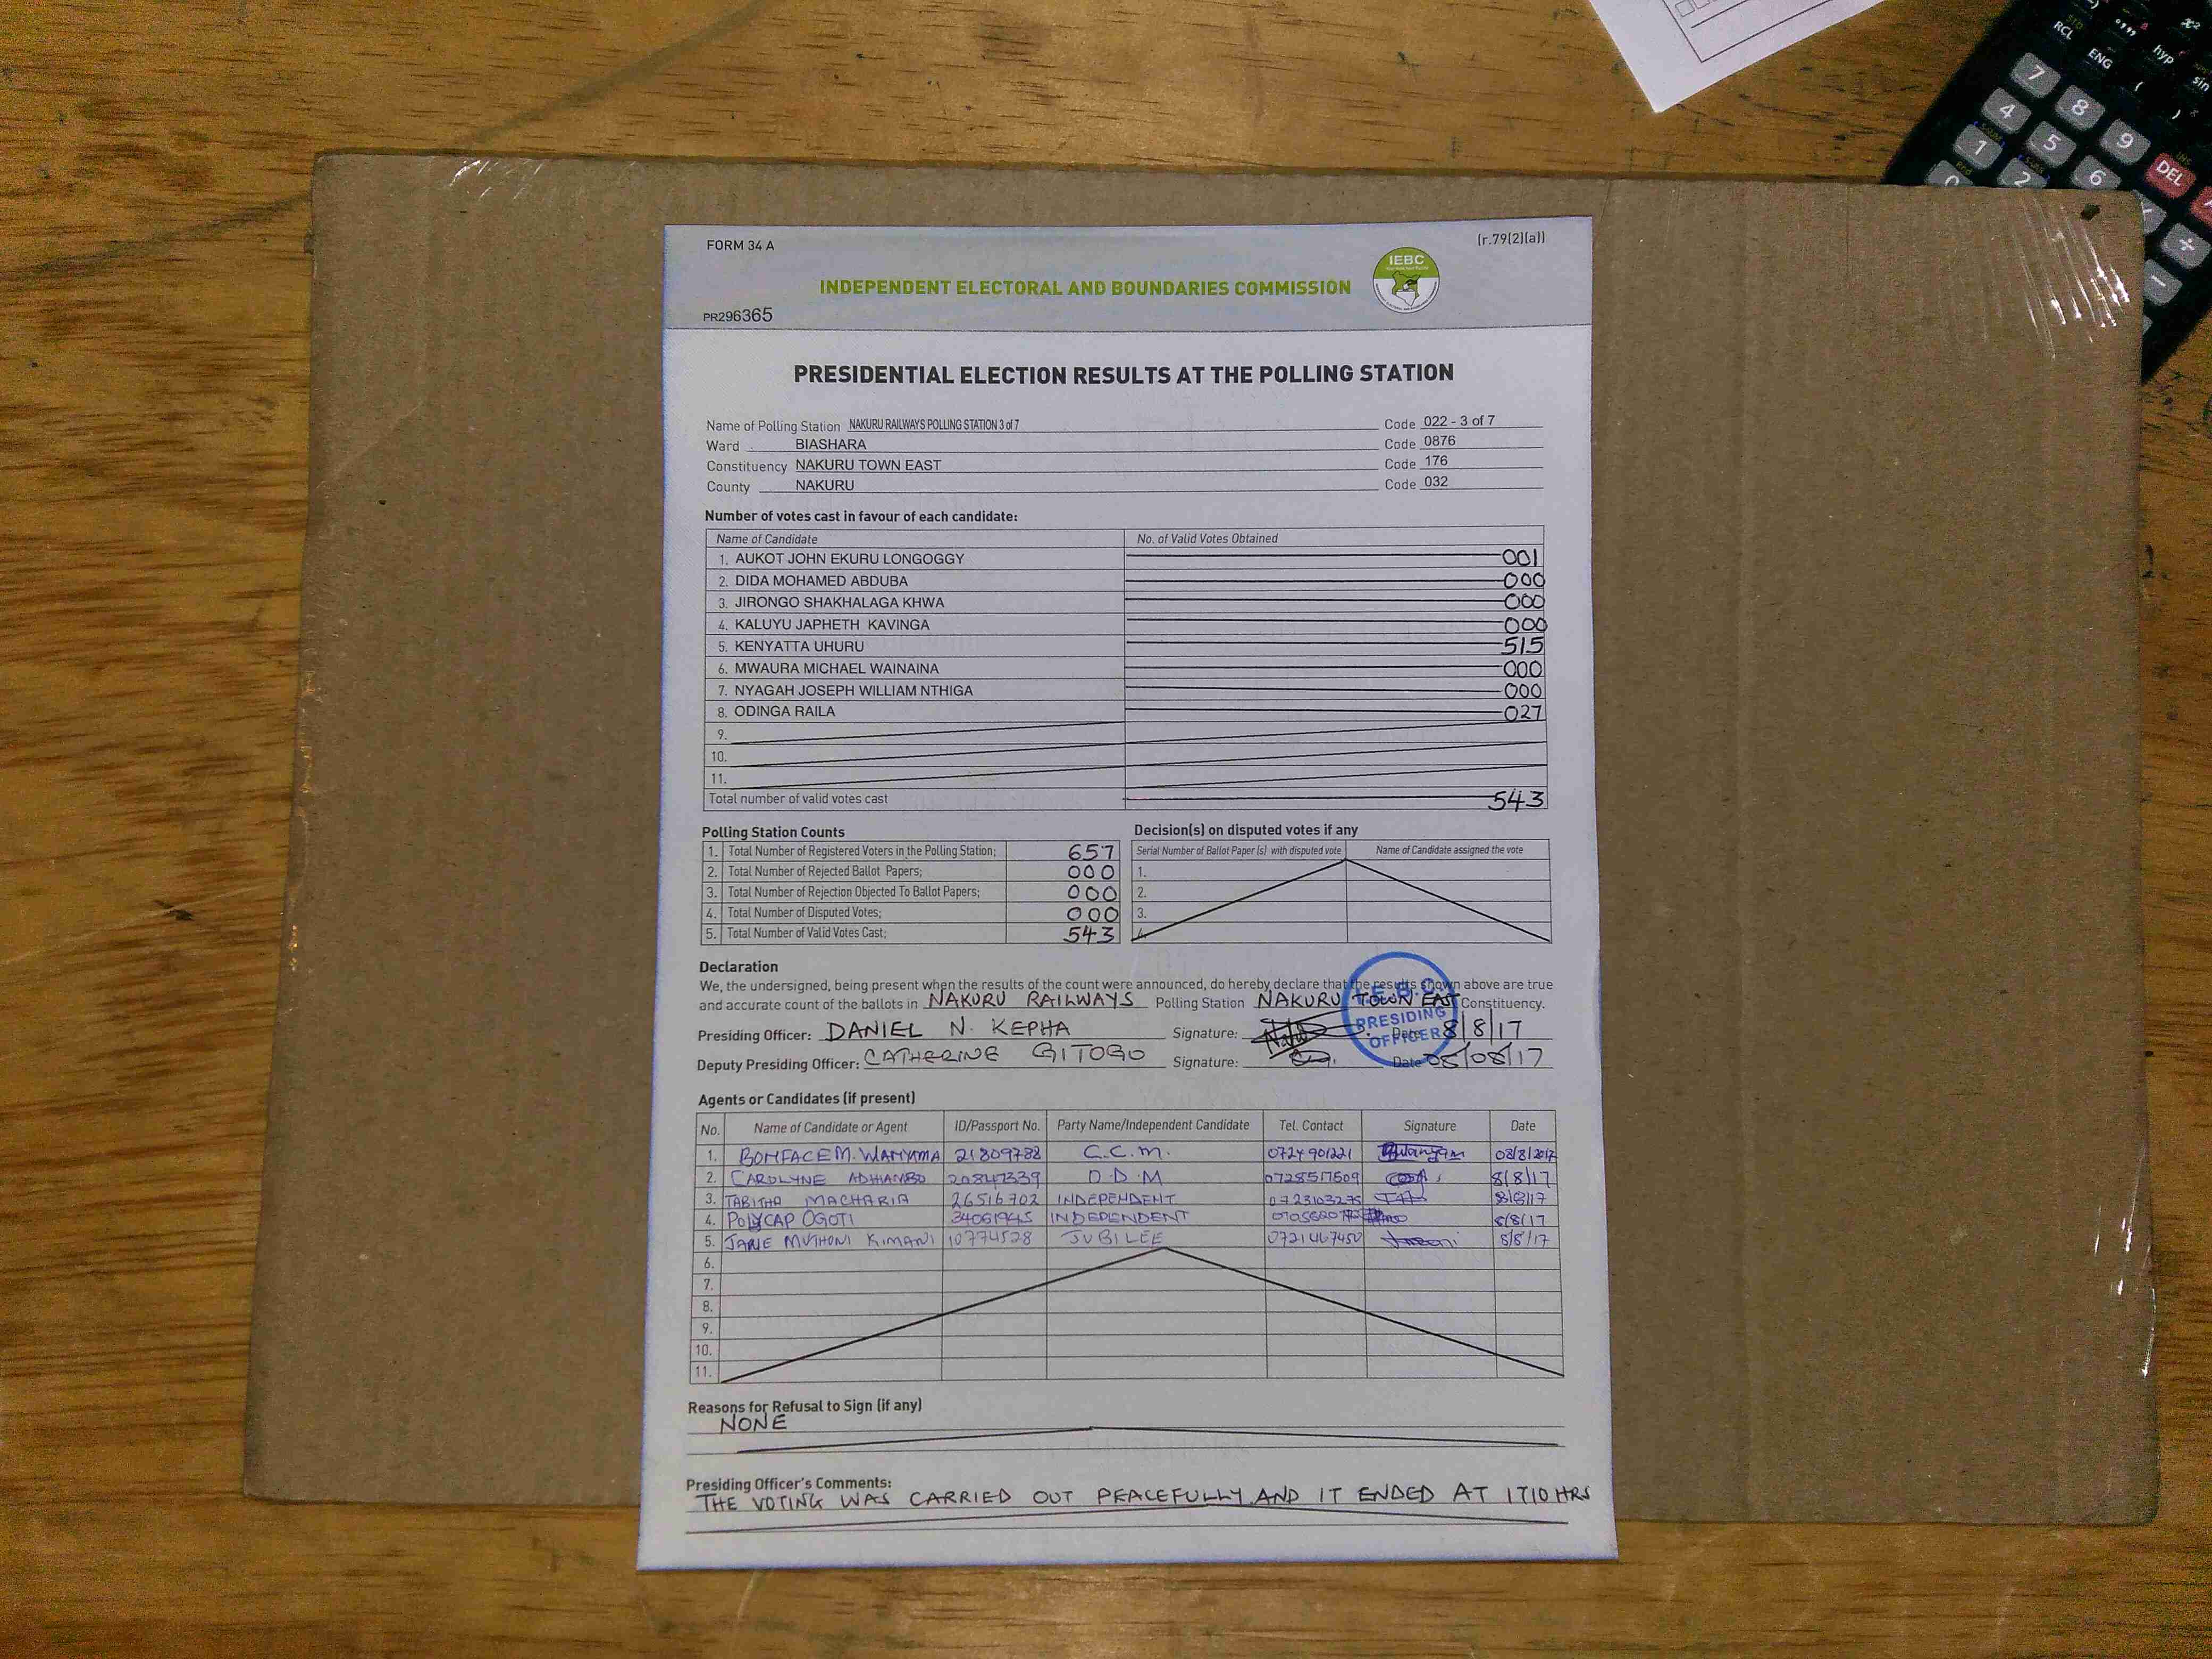 FORM 34 A
(r.79(2)(a))
IEBC
INDEPENDENT ELECTORAL AND BOUNDARIES COMMISSION
PR296365
PRESIDENTIAL ELECTION RESULTS AT THE POLLING STATION
Name of Polling Station NAKURU RAILWAYS POLLING STATION 3 of 7 Code 022 - 3 of 7
Ward BIASHARA Code 0876
Constituency NAKURU TOWN EAST Code 176
County NAKURU Code 032
Number of votes cast in favour of each candidate:
Name of Candidate No. of Valid Votes Obtained
1. AUKOT JOHN EKURU LONGOGGY 001
2. DIDA MOHAMED ABDUBA 000
3. JIRONGO SHAKHALAGA KHWA 000
4. KALUYU JAPHETH KAVINGA 000
5. KENYATTA UHURU 515
6. MWAURA MICHAEL WAINAINA 000
7. NYAGAH JOSEPH WILLIAM NTHIGA 000
8. ODINGA RAILA 027
9.
10.
11.
Total number of valid votes cast 543
Polling Station Counts
1. Total Number of Registered Voters in the Polling Station; 657
2. Total Number of Rejected Ballot Papers; 000
3. Total Number of Rejection Objected To Ballot Papers; 000
4. Total Number of Disputed Votes; 000
5. Total Number of Valid Votes Cast; 543
Decision(s) on disputed votes if any
Serial Number of Ballot Paper (s) with disputed vote Name of Candidate assigned the vote
1.
2.
3.
Declaration
We, the undersigned, being present when the results of the count were announced, do hereby declare that the results shown above are true
and accurate count of the ballots in NAKURU RAILWAYS Polling Station NAKURU TOWN EAST Constituency.
Presiding Officer: DANIEL N. KEPHA Signature: Date 8/8/17
Deputy Presiding Officer: CATHERINE GITOGO Signature: Date 08/08/17
I.E.B.C
PRESIDING
OFFICER
Agents or Candidates (if present)
No. Name of Candidate or Agent ID/Passport No. Party Name/Independent Candidate Tel. Contact Signature Date
1. BONIFACE M. WANYAMA 21809788 C.C.M. 0724901221 08/8/2017
2. CAROLYNE ADHIAMBO O.D.M 0728517509 8/8/17
3. TABITHA MACHARIA 26516702 INDEPENDENT 0723103275 8/8/17
4. POLYCAP OGOTI INDEPENDENT 8/8/17
5. JANE MUTHONI KIMANI 10774528 JUBILEE 0721467450 8/8/17
6.
7.
8.
9.
10.
11.
Reasons for Refusal to Sign (if any)
NONE
Presiding Officer's Comments:
THE VOTING WAS CARRIED OUT PEACEFULLY AND IT ENDED AT 1710 HRS
RCL
ENG
hyp
sin
(
)
7
8
9
DEL
4
5
6
1
2
0